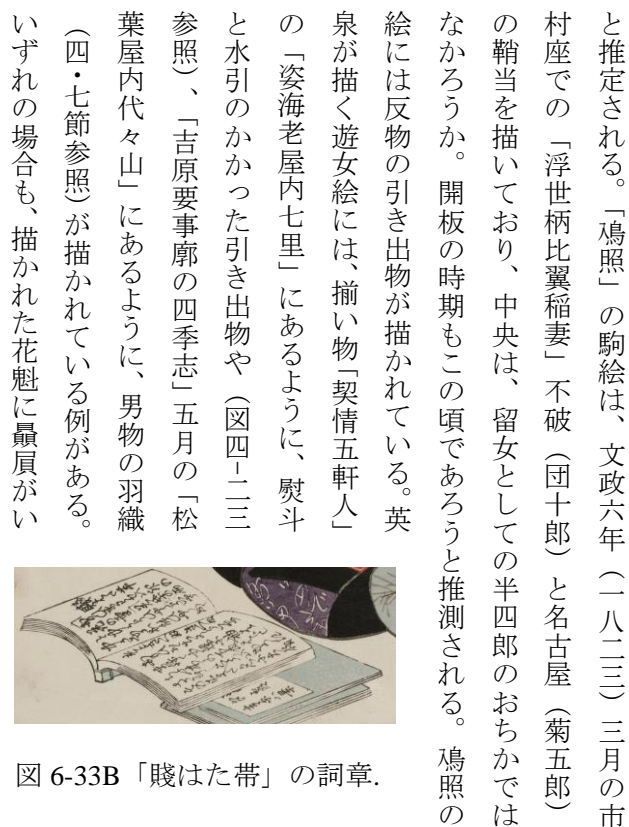 と推定される。「鳰照」の駒絵は、文政六年（一八二三）三月の市
村座での「浮世柄比翼稲妻」不破（団十郎）と名古屋（菊五郎）
の鞘当を描いており、中央は、留女としての半四郎のおちかでは
なかろうか。開板の時期もこの頃であろうと推測される。鳰照の
絵には反物の引き出物が描かれている。英
泉が描く遊女絵には、揃い物「契情五軒人」
の「姿海老屋内七里」にあるように、熨斗
と水引のかかった引き出物や（図四-二三
参照）、「吉原要事廓の四季志」五月の「松
葉屋内代々山」にあるように、男物の羽織
（四・七節参照）が描かれている例がある。
いずれの場合も、描かれた花魁に贔屓がい
図 6-33B「賤はた帯」の詞章.